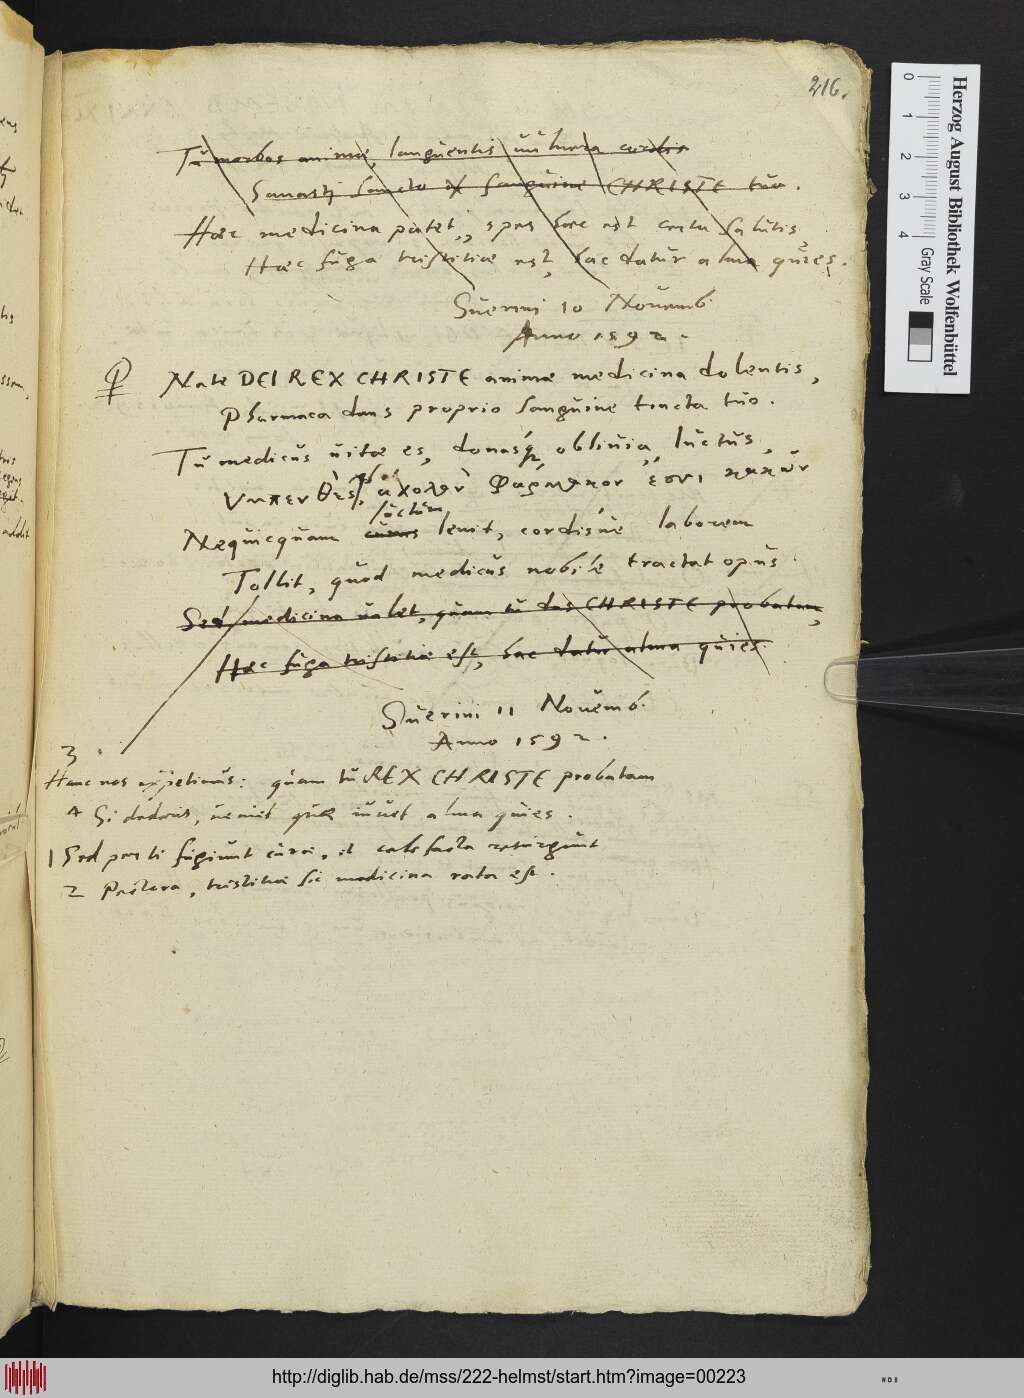 216.
Tu morbos animæ, languentis uulnera cordis
Sanasti sancto et sanguine CHRISTE tuo.
Hæc medicina patet, spes hæc est certa salutis,
Hæc fuga tristitiæ est, hac datur alma quies.
Suerini 10 Nouemb.
Anno 1592.
Nate DEI REX CHRISTE animæ medicina dolentis,
Pharmaca dans proprio sanguine tincta tuo.
Tu medicus uitæ es, donasq́ obliuia luctus,
Νηπενθὲς, ἄχολον φάρμακον ἐστι κακῶν
luctum
Nequicquam lenit, cordisúe laborem
Tollit, quod medicus nobile tractat opus
Sed medicina ualet, quam tu das CHRISTE probatam,
Hæc fuga tristitiæ est, hac datur alma quies.
Suerini 11 Nouemb.
Anno 1592.
3
Hanc nos expetimus: quam tu REX CHRISTE probatam
4 Si dederis, ueniet quæ iuuet alma quies.
1 Sed per te fugiunt curæ, et calefacta resurgunt
2 Pectora, tristitiæ sic medicina rata est.
Herzog August Bibliothek Wolfenbüttel
0 1 2 3 4
Gray Scale
http://diglib.hab.de/mss/222-helmst/start.htm?image=00223